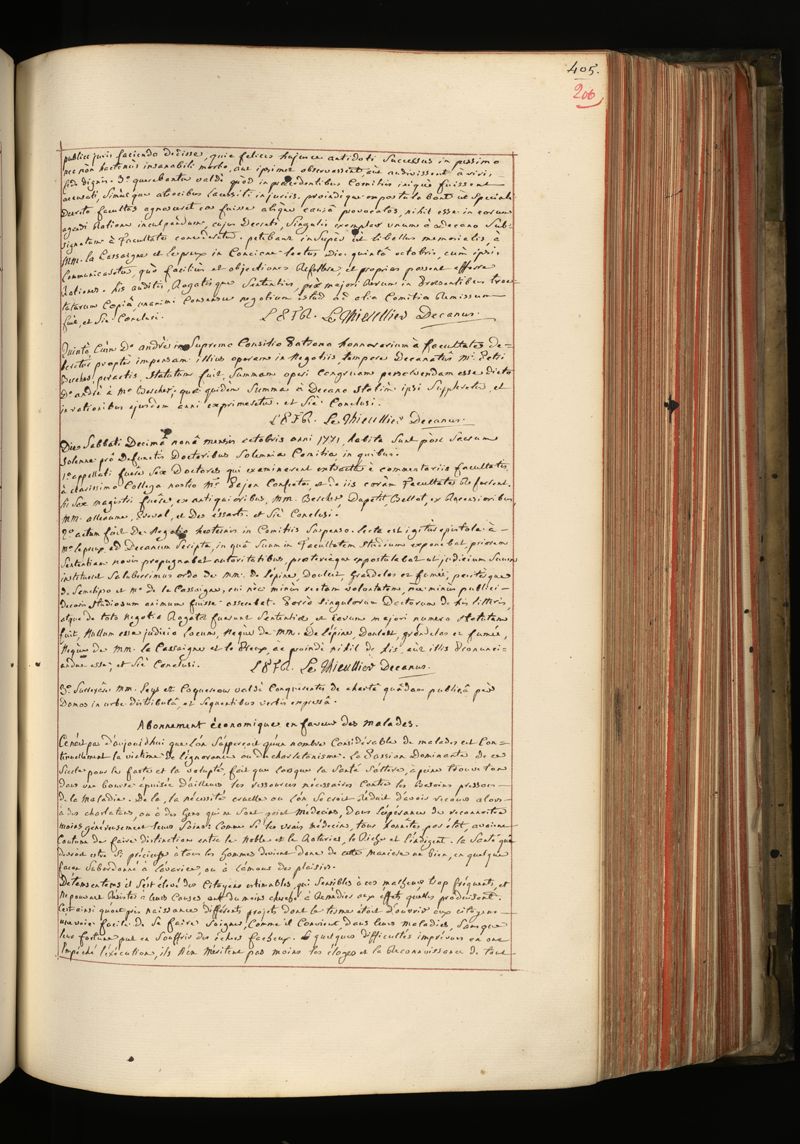 405.
206
publici juris faciendo dedisse, quia felices hujusce antidoti successus in pessimo
nec non hactenus insanabili morbo, aut ipsimet observassent, aut audivissent à viris
fide dignis. 3.º querebantur valdè quòd in precedentibus Comitiis iniquè fuissent
accusati, simùlque atrocibus lacessiti injuriis. proindèque expostulabant ut speciali
Decreto facultas agnosceret eos fuisse absque causâ provocatos, nihil esse in eorum
agendi ratione inculpandum, cujus Decreti, singulis exemplar unum à Decano sub-
signatum à facultate concederetur. petebant insuper ut libellus memorialis, à
MM. la Cassaigne et le preux in Concione lectus Die quintâ octobris, cum ipsis
Communicaretur, quò faciliùs et objectiones refellere, et proprias possent afferre
rationes. his auditis, rogatisque sententiis, pro majori rerum in præsentibus trac-
tatarum copiâ, unanimi consensu negotium istud ad alia Comitia remissum
fuit, et sic Conclusi. L. P. F. R. Le Thieullier Decanus.
Quinto, Cùm D.º andrè in Supremo Consilio patrono honorarium à facultate de-
beretur propter impensam illius operam in negotiis tempore Decanatûs M.ri Petri
Bercher, peractis, statutum fuit, summam operi congruam persolvendam esse dicto
D.º andrè à M.º Bercher; quæ quidem summa à Decano statim ipsi suppleretur, et
in rationibus ejusdem anni exprimeretur. et sic Conclusi.
L. P. F. R. Le Thieullier Decanus.
Die Sabbati Decimâ nonâ mensis octobris anni 1771, habita sunt post sacrum
solemne pro Defunctis Doctoribus solemnia Comitia in quibus.
1.º appellati fuere sex Doctores qui examinarent extracta è commentariis facultatis,
à clarissimo Collega nostro M.º Pajon Confecta, et de iis coram facultate referrent.
hi sex magistri fuere ex antiquioribus, MM. Bercher Dupetit, Bellot, ex recensioribus
MM. alleaume, Duval, et Des essarts. et sic Conclusi.
2.º actum fuit de negotio hactenus in Comitiis suspenso. lecta est igitur epistola à
M.º le preux ad Decanum scripta, in quâ suum in facultatem studium exponebat priorem
sententiam novis propugnabat autoritatibus, prætereàque expostulabat ut judicium suum
institueret saluberrimus ordo de MM. de l'épine, Doulcet, Grandelas et fumée, pariterque
de semetipso et M.º de la Cassaigne, cui nec minùs rectam voluntatem, nec minùs publici
Decoris studiosum animum fuisse asserebat. porrò singulorum Doctorum de his litteris,
atque de toto negotio rogatæ fuerunt sententiæ, et eorum majori numero statutum
fuit, nullum esse judicio locum, neque de MM. De l'épine, Doulcet, grandelas et fumée,
neque de MM. la Cassaigne et le preux, ac proindè nihil de his, aut illis pronunci-
andum esse; et sic Conclusi. L. P. F. R. Le Thieullier Decanus.
3.º Surrexêre MM. Leys et Coquereau valdè Conquerentes de chartâ quâdam publicâ per
Domos in urbe distributâ, et sequentibus verbis expressâ.
Abonnement économique en faveur des malades.
Ce n'est pas d'aujourd'hui que l'on s'apperçoit qu'un nombre Considérable de malades est Con-
tinuellement la victime de l'ignorance ou du charlatanisme. La passion Dominante de ce
siecle pour le faste et la volupté, fait que lorsque la santé s'altere, à peine trouve t'on
dans une bourse épuisée d'ailleurs les ressources nécessaires contre les besoins pressans
de la maladie. De là, la nécessité cruelle ou l'on se croit réduit d'avoir recours alors
à des charlatans, ou à des gens qui ne sont point médecins, dans l'espérance de reconnoitre
moins généreusement leurs soins: Comme si les vrais médecins, tous honnêtes par état, avoient
Coutume de faire distinction entre le noble et le Roturier, le Riche et l'indigent. la santé qui
devroit etre si précieuse à tous les hommes devient donc de cette maniere un bien, en quelque
façon subordonné à l'avarice, ou à l'amour des plaisirs.
De tems en tems il s'est élevé des Citoyens estimables, qui sensibles à ces malheurs trop fréquents, et
ne pouvant résister à leurs causes ont du moins cherché à remédier aux effets qu'elles produisent.
C'est ainsi qu'ont pris naissance différents projets dont le terme étoit d'ouvrir aux citoyens
une voie facile de se faire soigner, Comme il Convient, dans leurs maladies, sans que
leur fortune put en souffrir des échecs facheux. Si quelques difficultés imprévues en ont
Empêché l'exécution, ils n'en méritent pas moins les éloges et la reconnoissance de tout